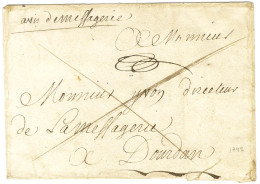 avis de messagerie
A Monsieur
Monsieur yvon directeur
de La Messagerie
a Dourdan